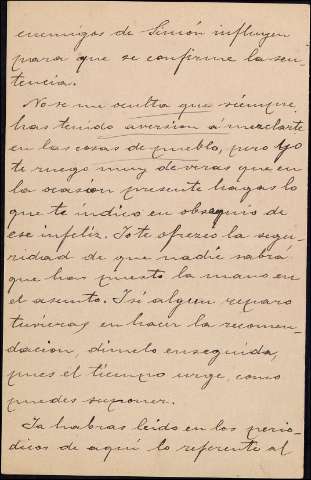 enemigos de Simón influyen
para que se confirme la sen-
tencia.
No se me oculta que siempre
has tenido aversion á mezclarte
en las cosas de pueblo, pero yo
te ruego muy de veras que en
la ocasión presente hagas lo
que te indico en obsequio de
ese infeliz. Yo te ofrezco la segu-
ridad de que nadie sabrá
que has puesto la mano en
el asunto. Y si algun reparo
tuvieras en hacer la recomen-
dacion, dimelo enseguida,
pues el tiempo urge, como
puedes suponer.
Ya habras leido en los perio-
dicos de aquí lo referente al